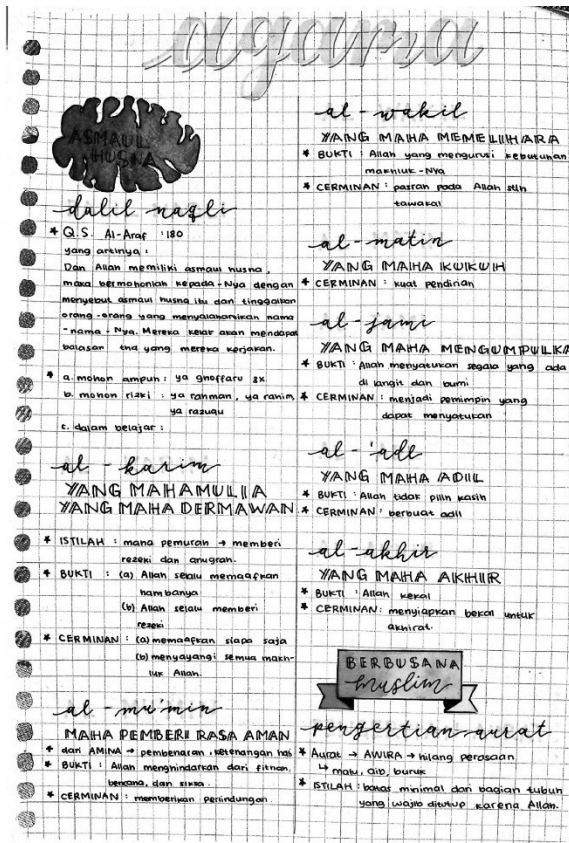 agama
ASMAUL
HUSNA
dalil naqli
* Q.S. Al-Araf :180
yang artinya :
Dan Allah memiliki asmaul husna,
maka bermohonlah kepada-Nya dengan
menyebut asmaul husna itu dan tinggalkan
orang-orang yang menyalahartikan nama
-nama-Nya. Mereka kelak akan mendapat
balasan thd yang mereka kerjakan.
* a. mohon ampun : ya ghoffaru 3x
b. mohon rizki : ya rahman, ya rahim,
ya razuqu
c. dalam belajar :
al-karim
YANG MAHAMULIA
YANG MAHA DERMAWAN
* ISTILAH : maha pemurah → memberi
rezeki dan anugrah.
* BUKTI : (a) Allah selalu memaafkan
hambanya
(b) Allah selalu memberi
rezeki
* CERMINAN : (a) memaafkan siapa saja
(b) menyayangi semua makh-
luk Allah.
al-mu'min
MAHA PEMBERI RASA AMAN
* dari AMINA → pembenaran, ketenangan hati
* BUKTI : Allah menghindarkan dari fitnah,
bencana, dan siksa.
* CERMINAN : memberikan perlindungan.
al-wakil
YANG MAHA MEMELIHARA
* BUKTI : Allah yang mengurusi kebutuhan
makhluk-Nya
* CERMINAN : pasrah pada Allah stlh
tawakal
al-matin
YANG MAHA KUKUH
* CERMINAN : kuat pendirian
al-jami
YANG MAHA MENGUMPULKA
* BUKTI : Allah menyatukan segala yang ada
di langit dan bumi
* CERMINAN : menjadi pemimpin yang
dapat menyatukan
al-'adl
YANG MAHA ADIL
* BUKTI : Allah tidak pilih kasih
* CERMINAN : berbuat adil
al-akhir
YANG MAHA AKHIR
* BUKTI : Allah kekal
* CERMINAN : menyiapkan bekal untuk
akhirat.
BERBUSANA
muslim
pengertian aurat
* Aurat → AWIRA → hilang perasaan
↳ malu, aib, buruk
* ISTILAH : batas minimal dari bagian tubuh
yang wajib ditutup karena Allah.